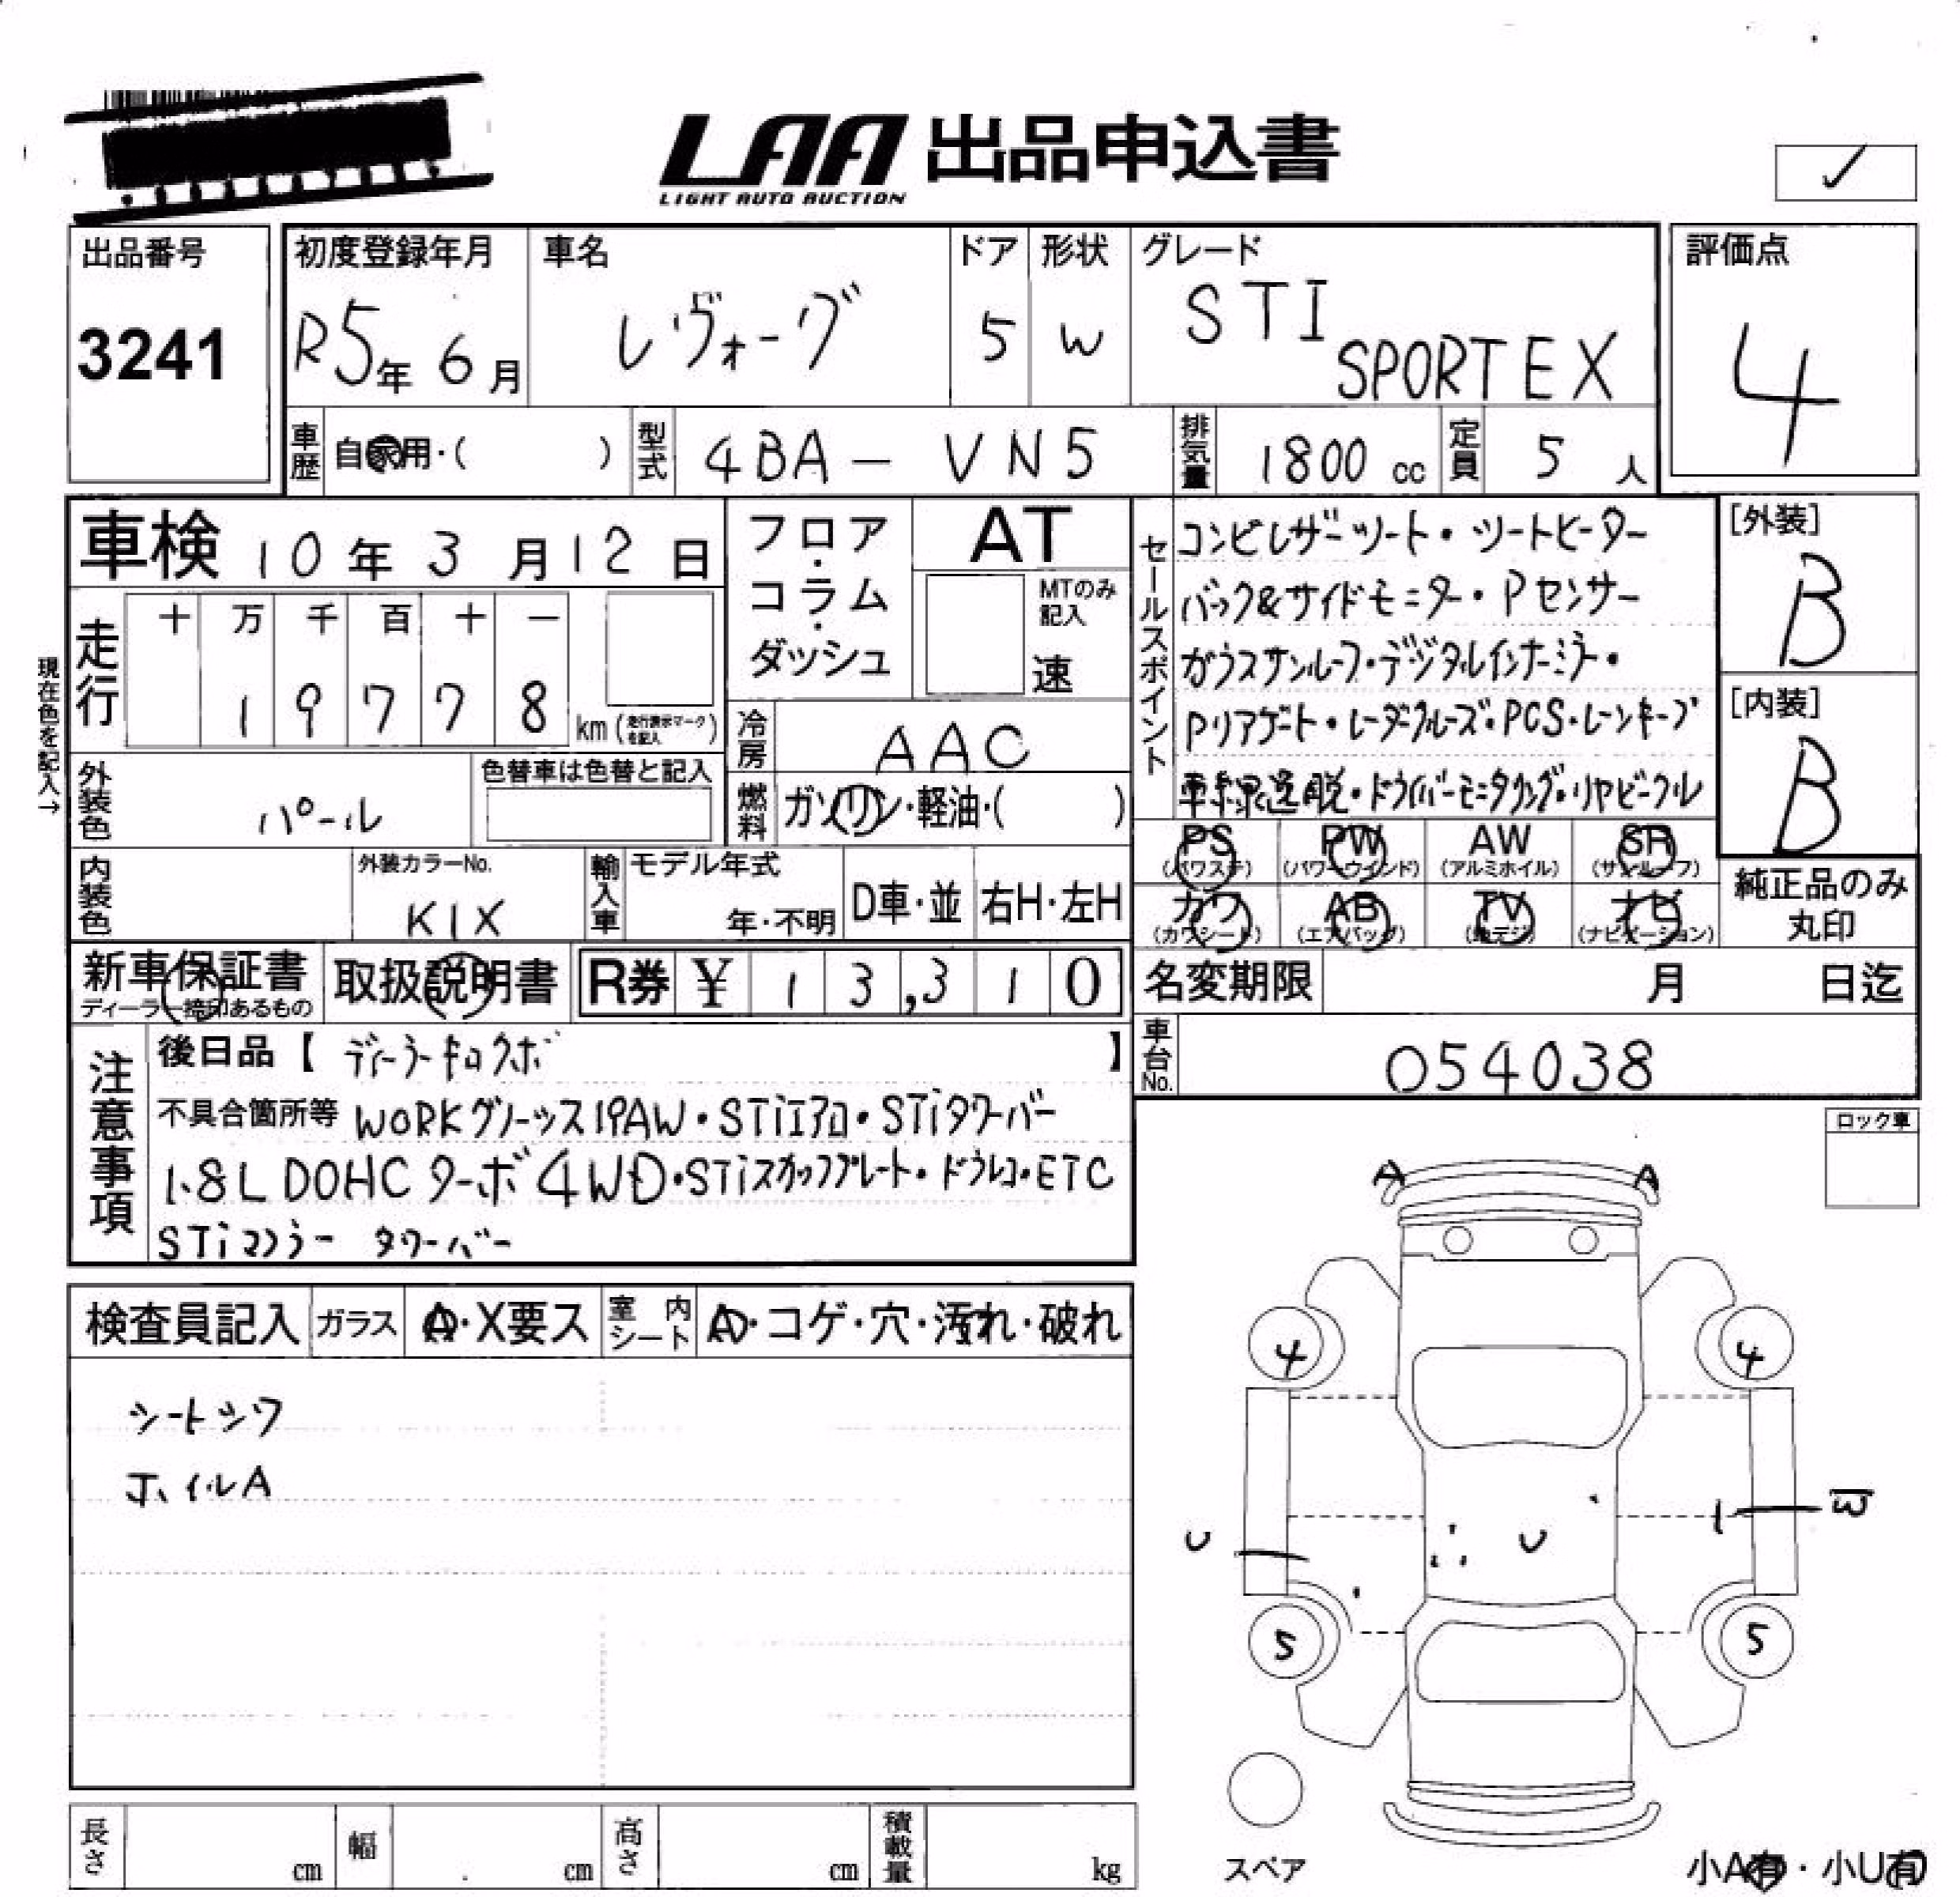 LAA 出品申込書
LIGHT AUTO AUCTION
出品番号
3241
初度登録年月
R5年 6月
車名
レヴォーグ
ドア
5
形状
W
グレード
STI
SPORT EX
評価点
4
車歴 自家用・( )
型式 4BA - VN5
排気量 1800 cc
定員 5 人
車検 10年 3月12日
走行
十 万 千 百 十 一
1 9 7 7 8 km (走行表示マークを記入)
現在色を記入→
外装色 パール
色替車は色替と記入
内装色
外装カラーNo.
K1X
フロア・コラム・ダッシュ
AT
MTのみ記入
速
冷房 AAC
燃料 ガソリン・軽油・( )
輸入車
モデル年式
年・不明
D車・並
右H・左H
新車保証書
ディーラー捺印あるもの
取扱説明書
R券 ¥ 13,310
セールスポイント
コンビレザーシート・シートヒーター
バック&サイドモニター・Pセンサー
ガラスサンルーフ・デジタルインナーミラー・
Pリアゲート・レーダークルーズ・PCS・レーンキープ
車線逸脱・ドライバーモニタリング・リヤビークル
[外装]
B
[内装]
B
PS (パワステ)
PW (パワーウインド)
AW (アルミホイル)
SR (サンルーフ)
カワ (カワシート)
AB (エアバッグ)
TV (地デジ)
ナビ (ナビゲーション)
純正品のみ丸印
名変期限 月 日迄
車台No. 054038
注意事項
後日品【 】
不具合箇所等 WORKグノーシス19AW・STiエアロ・STiタワーバー
1.8L DOHC ターボ 4WD・STiスカッフプレート・ドラレコ・ETC
STiマフラー タワーバー
ロック車
検査員記入
ガラス A・X要ス
室内シート A・コゲ・穴・汚れ・破れ
シートシワ
ホイルA
A A
4 4
U
5 5
スペア
小A有・小U有
長さ cm
幅 cm
高さ cm
積載量 kg